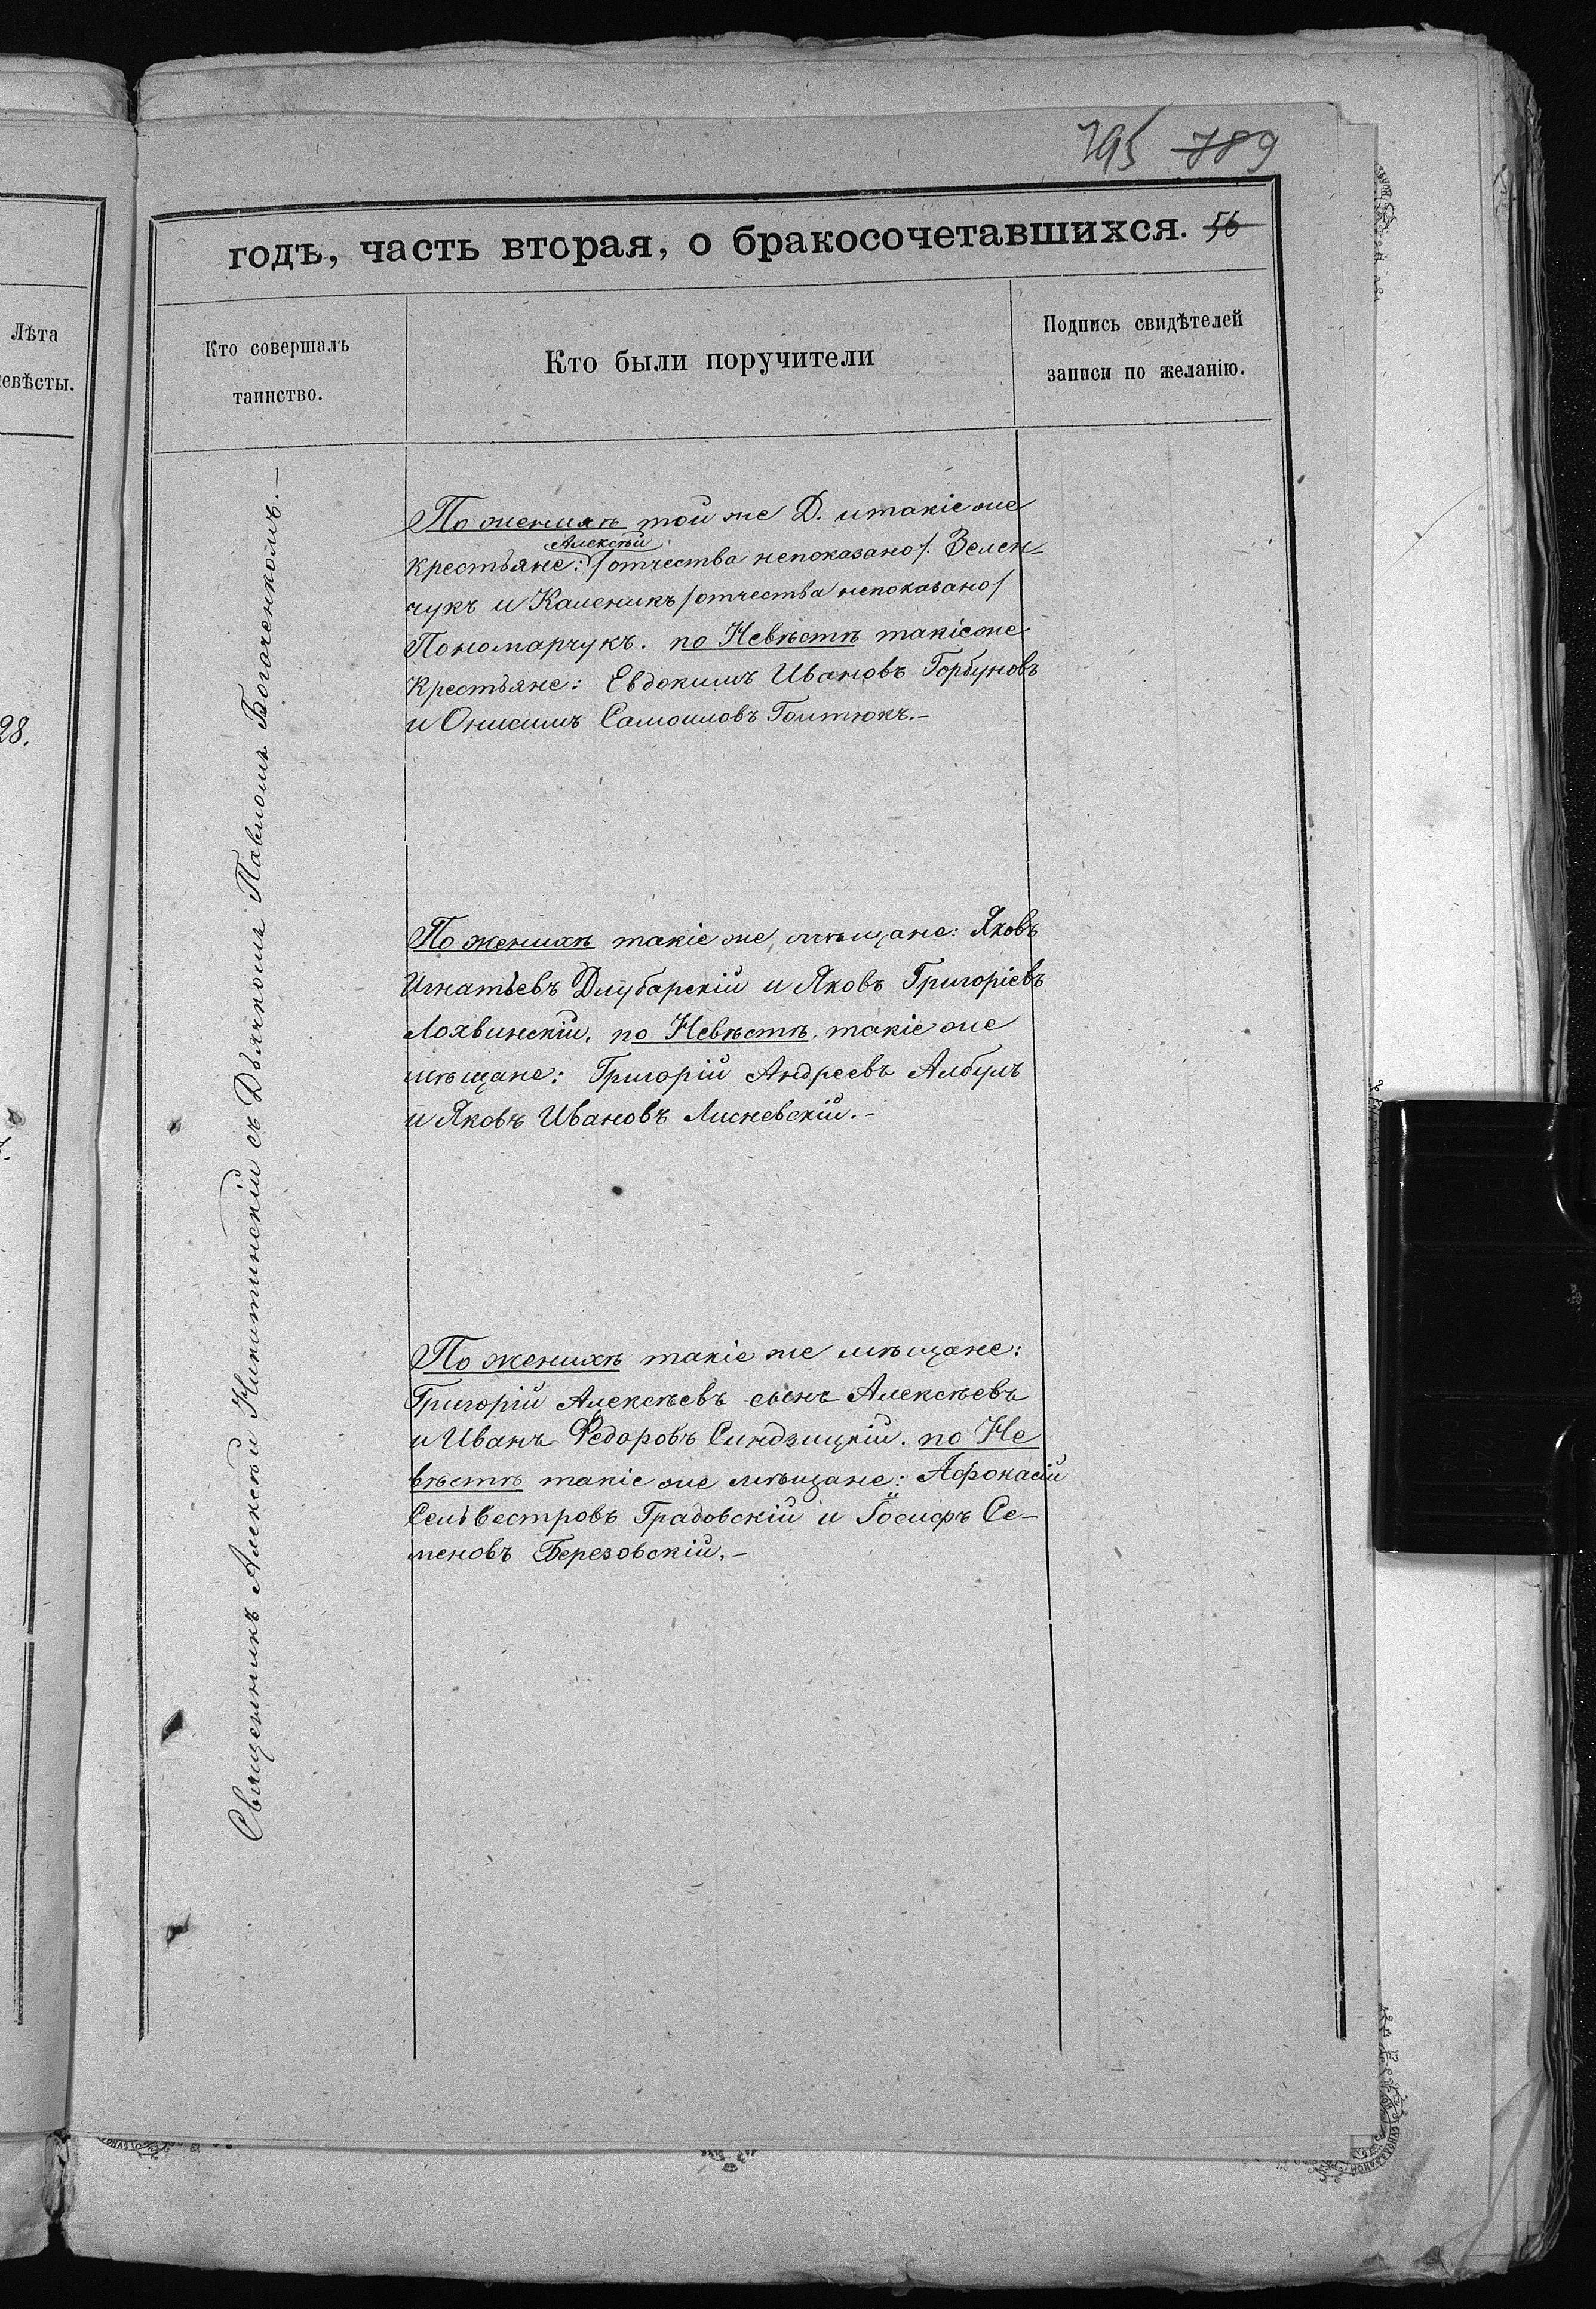 795 789
годъ, часть вторая, о бракосочетавшихся. 56
Лѣта
невѣсты.
Кто совершалъ
таинство.
Кто были поручители
Подпись свидѣтелей
записи по желанію.
28.
Священникъ Алексѣй Никитинскій съ Дьячкомъ Павломъ Богаченкомъ.—
По женихѣ той же Д. и такіе же
Алексѣй
крестьяне: /отчества непоказано/. Зелен-
чукъ и Каленикъ /отчества непоказано/
Пономарчукъ. по Невѣстѣ такіе же
Крестьяне: Евдокимъ Ивановъ Горбуновъ
и Онисимъ Самоиловъ Гоитюкъ.—
По женихѣ такіе же, мѣщане: Яковъ
Игнатьевъ Длубарскій и Яковъ Григоріевъ
Лохвинскій. по Невѣстѣ, такіе же
мѣщане: Григорій Андреевъ Албулъ
и Яковъ Ивановъ Лисневскій.—
По женихѣ такіе же мѣщане:
Григорій Алексѣевъ сынъ Алексѣевъ
и Иванъ Федоровъ Синдзицкій. по Не
вѣстѣ такіе же мѣщане: Афонасій
Сельвестровъ Градовскій и Іосифъ Се-
меновъ Березовскій.—